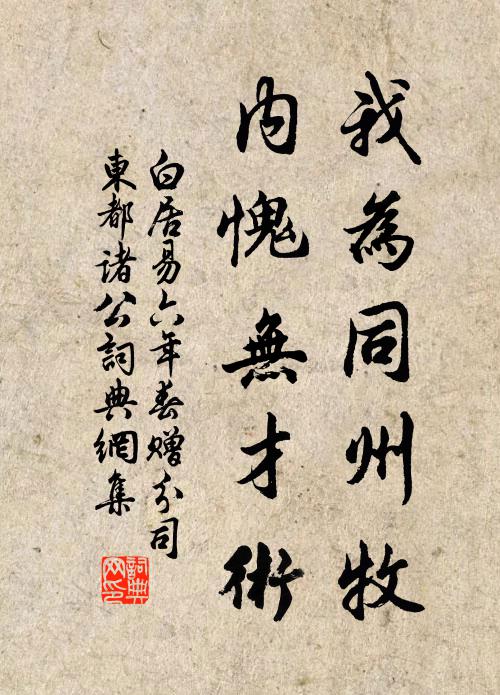 我為同州牧
內愧無才術
白居易六年春贈分司
東都諸公詞典網集
詞典
网印